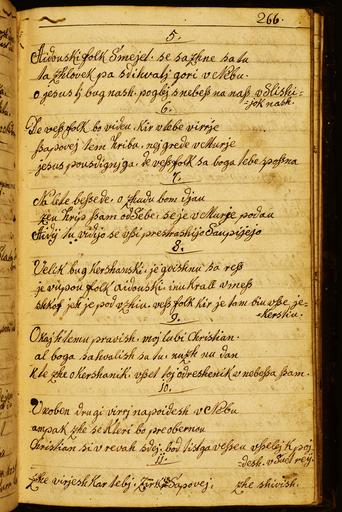 266.
5.
Aidouski folk Smejel. se sazhne satu
ta zhlovek pa sdihvalj gori v Nebu.
o jesus lj bug nash. poglej snebess na nass vsliski=
=jok nash.
6.
De vess folk bo viden. kir vtebe virrje
sapovej tem hriba, nej grede v Murje
jesus pousdignjga. de vess folk sa boga tebe sposna
7.
Na lete bessede. o zhudu bom djau
zeu hrib sam odsebe. se je v Murje podau
Aidij tu vidijo se vsi prestrashijo
8.
Velik bug kershanski. je goishnu sa ress
je vupou folk aidouski. inu krall vmess
shkof jeh je pod vzhiu. vess folk kir je tam biu vse je=
=kerstiu.
9.
O kaj k temu pravish. moj lubi Christian.
al boga sahvalish sa tu. nuzh nu dan
k le zhe o kershanik. vsel toj odreshenik v nebessa sam.
10.
U koben drugi virrj na poidesh v Nebu
ampak zhe se k leri bo preobernou
Christian si v revah sdej. bod tistga vesseu vselej k poj
=desh. v Suet rey.
11.
Zhe virjesh kar tebj. Zirkou sapovej. zhe shivish.